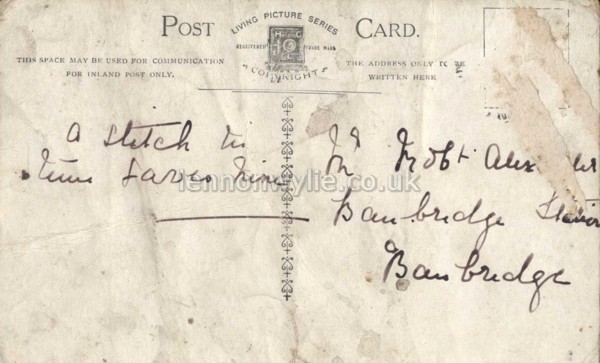 POST CARD.
LIVING PICTURE SERIES
REGISTERED TRADE MARK
COPYRIGHT
THIS SPACE MAY BE USED FOR COMMUNICATION
FOR INLAND POST ONLY.
THE ADDRESS ONLY TO BE
WRITTEN HERE
A stitch in
time saves nine
lennonwylie.co.uk
Mr Robt Alexander
Banbridge Station
Banbridge